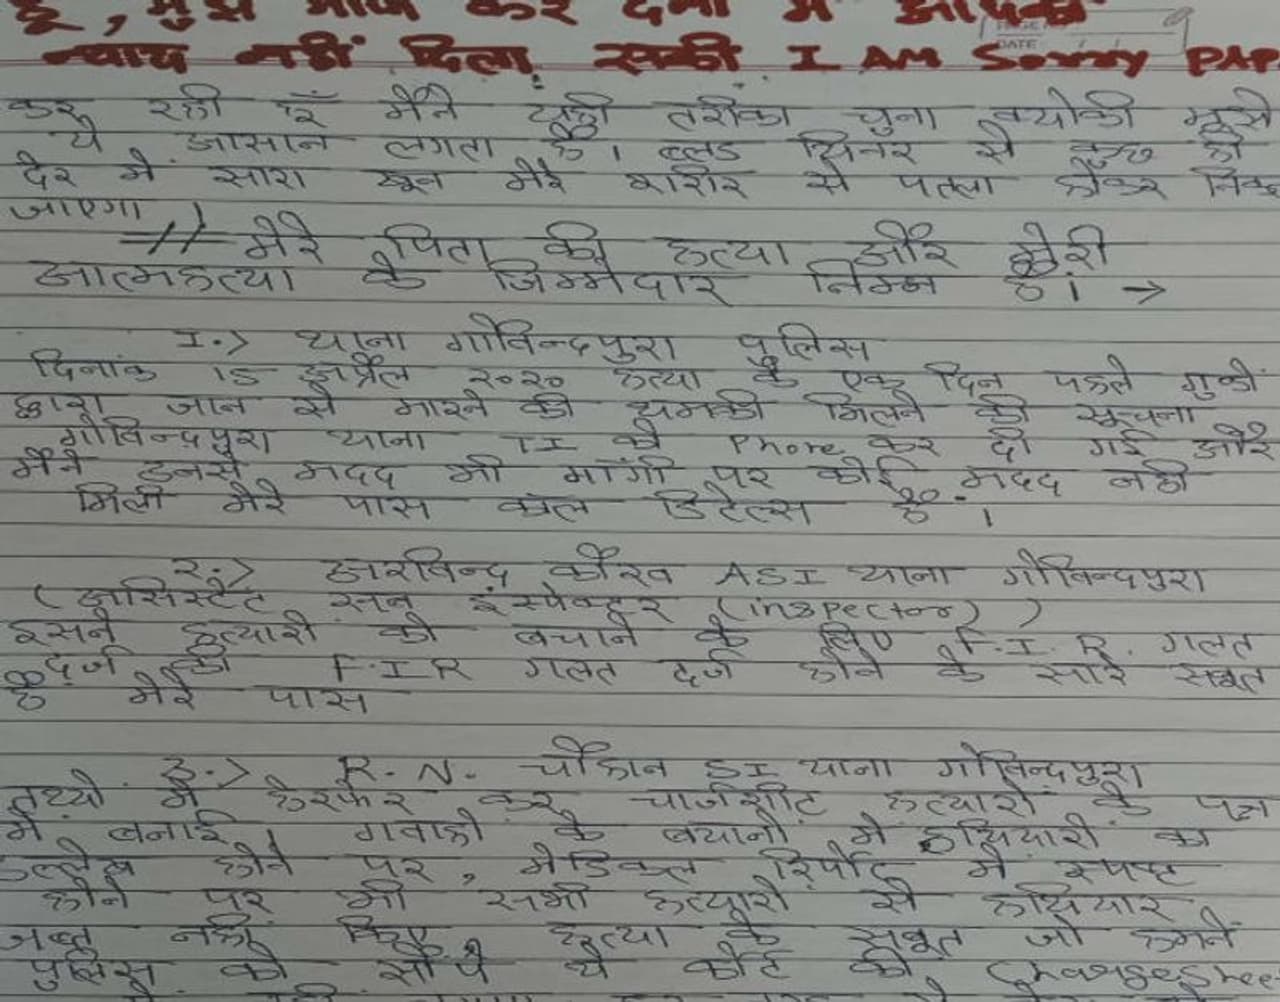 हूं, मुझे माफ कर देना मैं आपको
न्याय नहीं दिला सकी I AM Sorry PAP
PAGE
DATE
कर रही हूँ मैंने यही तरीका चुना क्योकी मुझे
ये आसान लगता है। ब्लड थिनर से कुछ ही
देर मे सारा खून मेरे शरीर से पतला होकर निक
जाएगा।
मेरे पिता की हत्या और मेरी
आत्महत्या के जिम्मेदार निम्न है। →
1.> थाना गोविन्दपुरा पुलिस
दिनांक 15 अप्रैल २०२० हत्या के एक दिन पहले गुंडो
द्वारा जान से मारने की धमकी मिलने की सूचना
गोविन्दपुरा थाना TI को Phone कर दी गई और
मैंने उनसे मदद भी मांगी पर कोई मदद नही
मिली मेरे पास कॉल डिटेल्स है।
२.> अरविन्द कौरव ASI थाना गोविन्दपुरा
(असिस्टेंट सब इंस्पेक्टर (inspector))
इसने हत्यारो को बचाने के लिए F.I.R. गलत
दर्ज की F.I.R गलत दर्ज होने के सारे सबूत
है मेरे पास
3.> R.N. चौहान SI थाना गोविन्दपुरा
तथ्यो मे हेरफेर कर चार्जशीट हत्यारो के पक्ष
मे बनाई। गवाहो के बयानो मे हथियारो का
उल्लेख होने पर, मेडिकल रिर्पोट मे स्पष्ट
होने पर भी सभी हत्यारो से हथियार
जब्त नही किए, हत्या के सबूत जो हमने
पुलिस को सौंपे थे कोर्ट की, Chargeshee